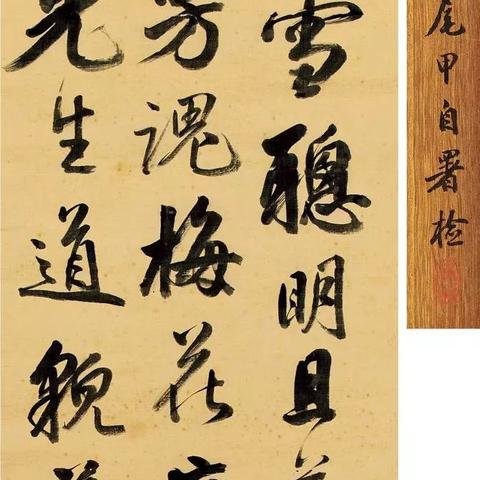 雪聰明且
芳魂梅花
先生道貌
尾甲自署檢